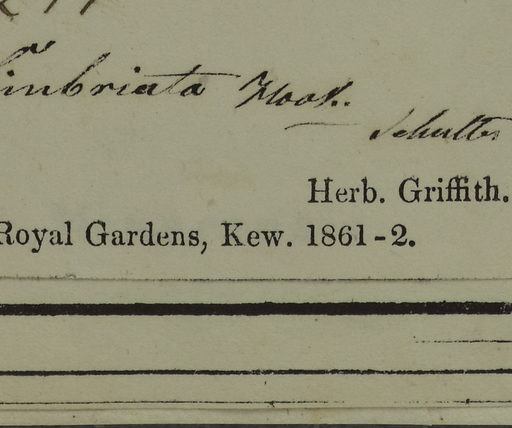 fimbriata Hook.
Schultes
Herb. Griffith.
Royal Gardens, Kew. 1861-2.